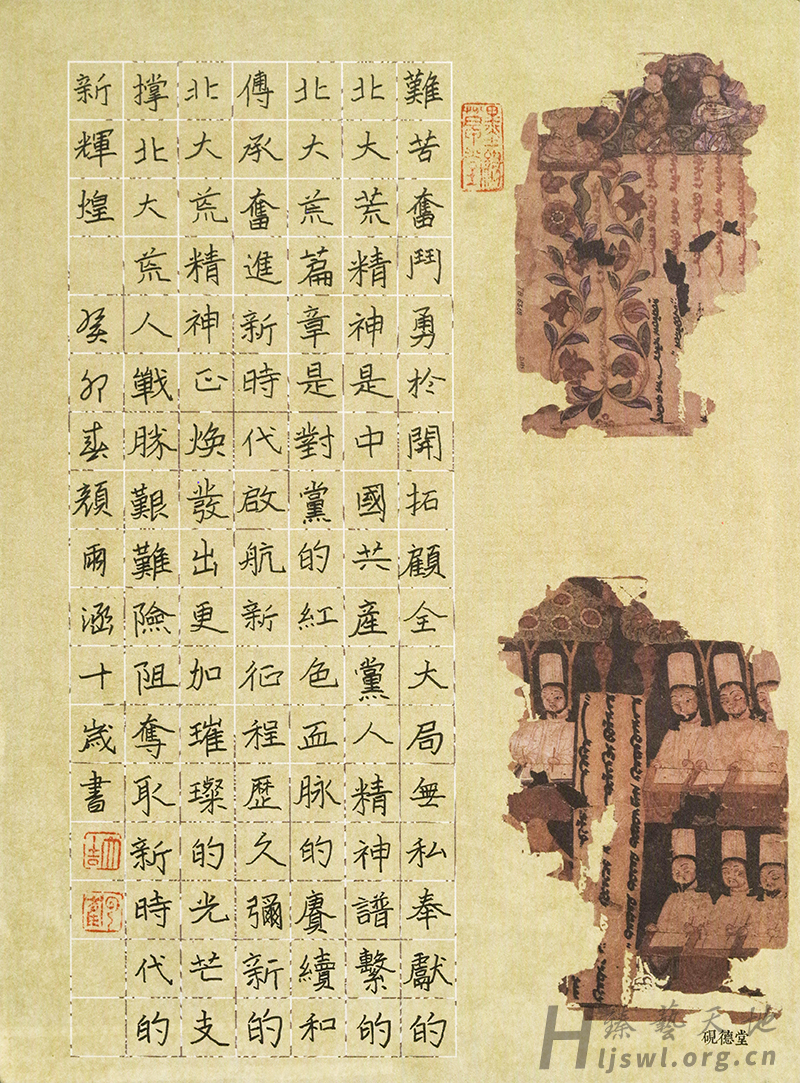 難苦奮鬥勇於開拓顧全大局無私奉獻的
北大荒精神是中國共產黨人精神譜繫的
北大荒篇章是對黨的紅色血脈的賡續和
傳承奮進新時代啟航新征程歷久彌新的
北大荒精神正煥發出更加璀璨的光芒支
撐北大荒人戰勝艱難險阻奪取新時代的
新輝煌 癸卯春顏雨涵十歲書
硯德堂
臻藝天地
Hljswl.org.cn